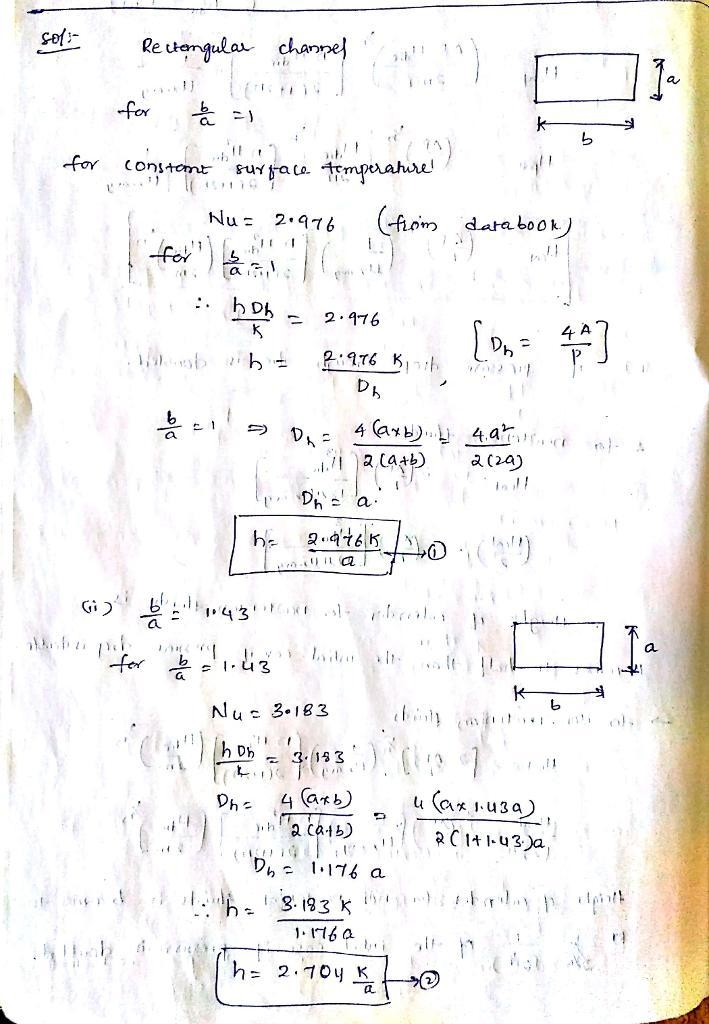 Sol:-
Rectangular channel
a
b
for b/a = 1
for constant surface temperature
Nu = 2.976 (from databook)
for b/a = 1
∴ hDh/K = 2.976
h = 2.976 K/Dh , [Dh = 4A/P]
b/a = 1 ⇒ Dh = 4(a×b)/2(a+b) = 4.a²/2(2a)
Dh = a.
h = 2.976 K/a → ①
(ii) b/a = 1.43
for b/a = 1.43
a
b
Nu = 3.183
hDh/k = 3.183
Dh = 4(a×b)/2(a+b) = 4(a×1.43a)/2(1+1.43)a
Dh = 1.176 a
∴ h = 3.183 K/1.176a
h = 2.704 K/a → ②